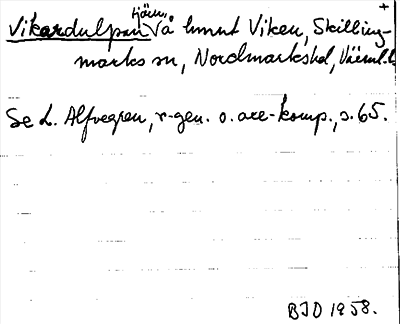 +
tjärn,
Vikardulpan Vå hmnt Viken, Skilling-
marks sn, Nordmarkshd, Värml. l.
Se L. Alfvegren, r-gen. o. are-komp., s. 65.
BJO 1958.